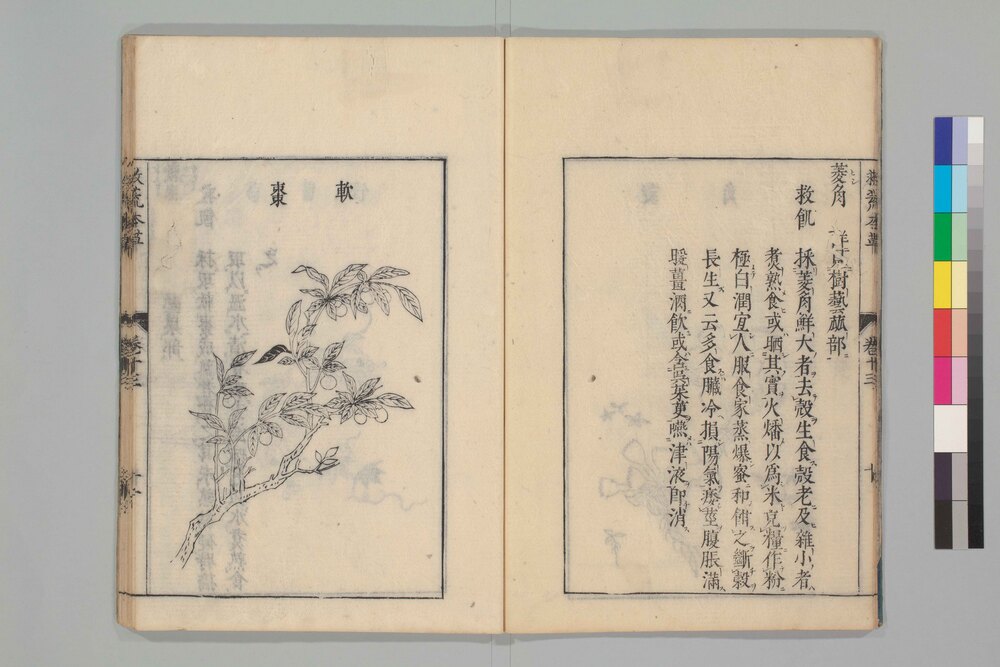 菱角 詳見樹藝蓏部
救飢 採菱角鮮大者去殻生食殻老及雜小者
煮熟食或晒其實火燔以為米充糧作粉
極白潤宜人服食家蒸爆蜜和餌之斷穀
長生又云多食臟冷損陽氣痿莖腹脹滿
暖薑酒飲或含吳茱萸嚥津液即消
卷十三
軟棗
救荒本草
卷十三